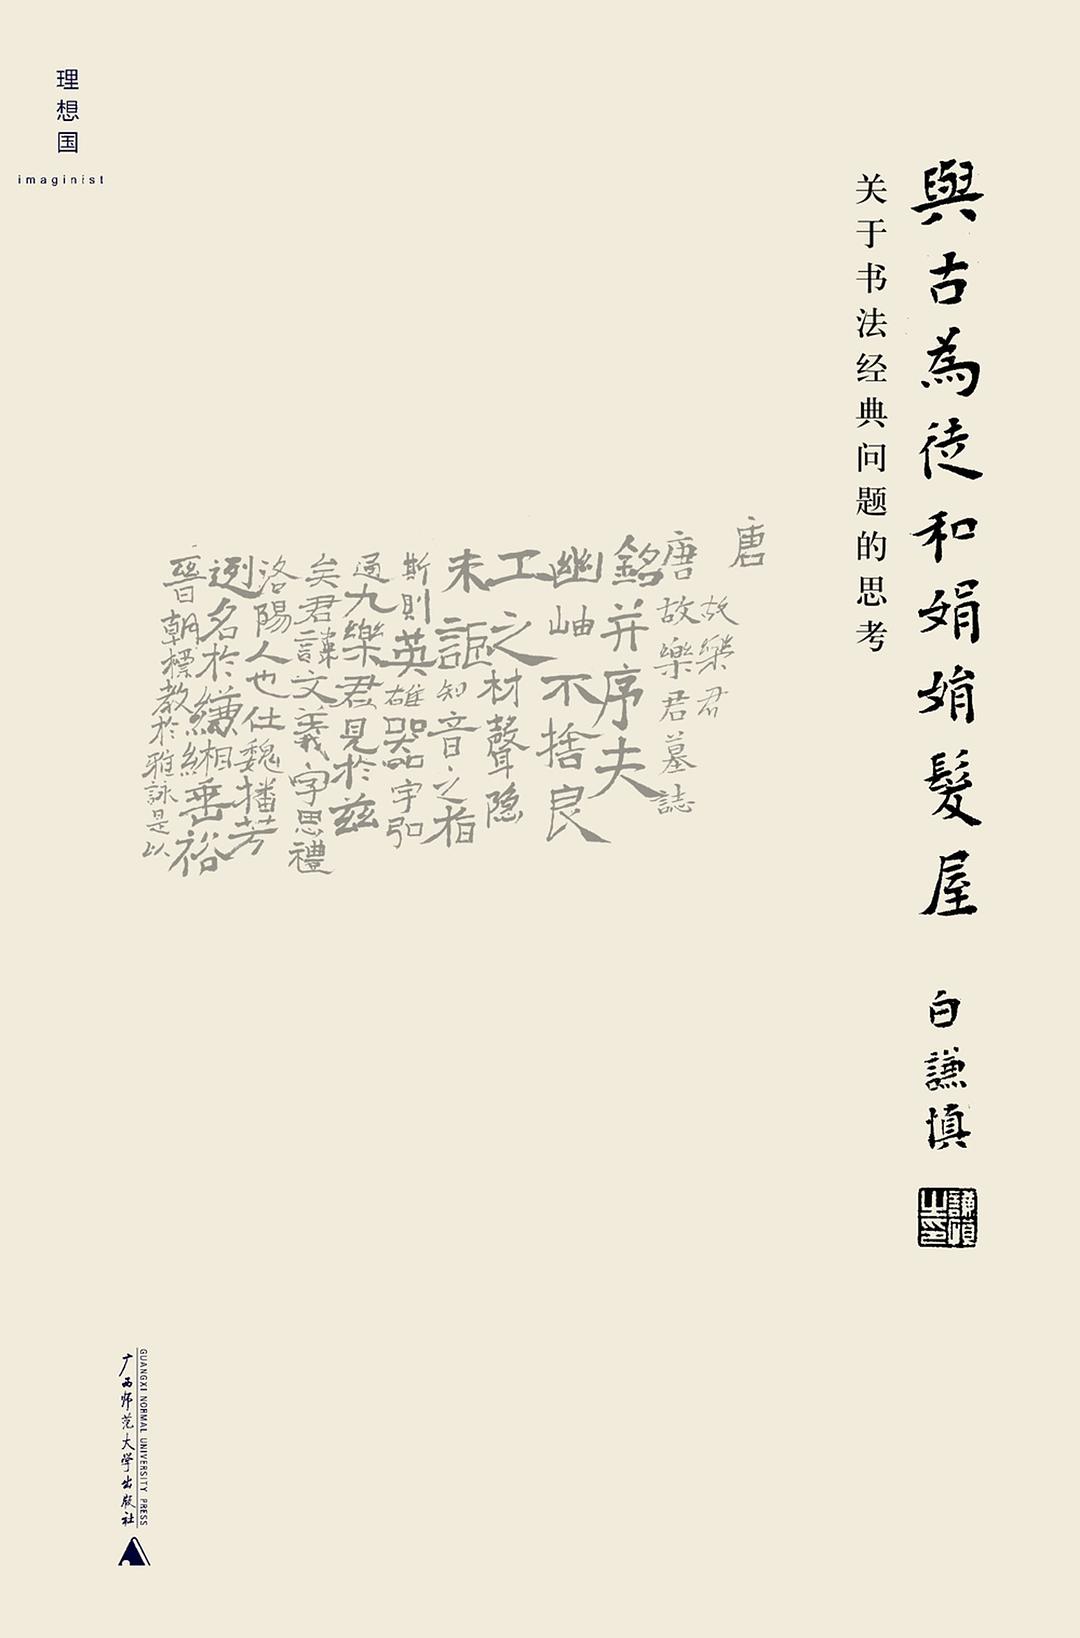 與古為徒和娟娟髮屋
白謙慎
謙慎之印
关于书法经典问题的思考
唐
故樂君
唐故樂君墓誌
銘并序夫
幽岫不捨良
工之材聲隐
未詎知知音之指
斯則英雄器字弘
過九樂君見於兹
矣君諱文義字思禮
洛陽人也仕魏播芳
迾名於縑緗垂裕
晉朝標教於雅詠是以
理想国
imaginist
广西师范大学出版社
GUANGXI NORMAL UNIVERSITY PRESS